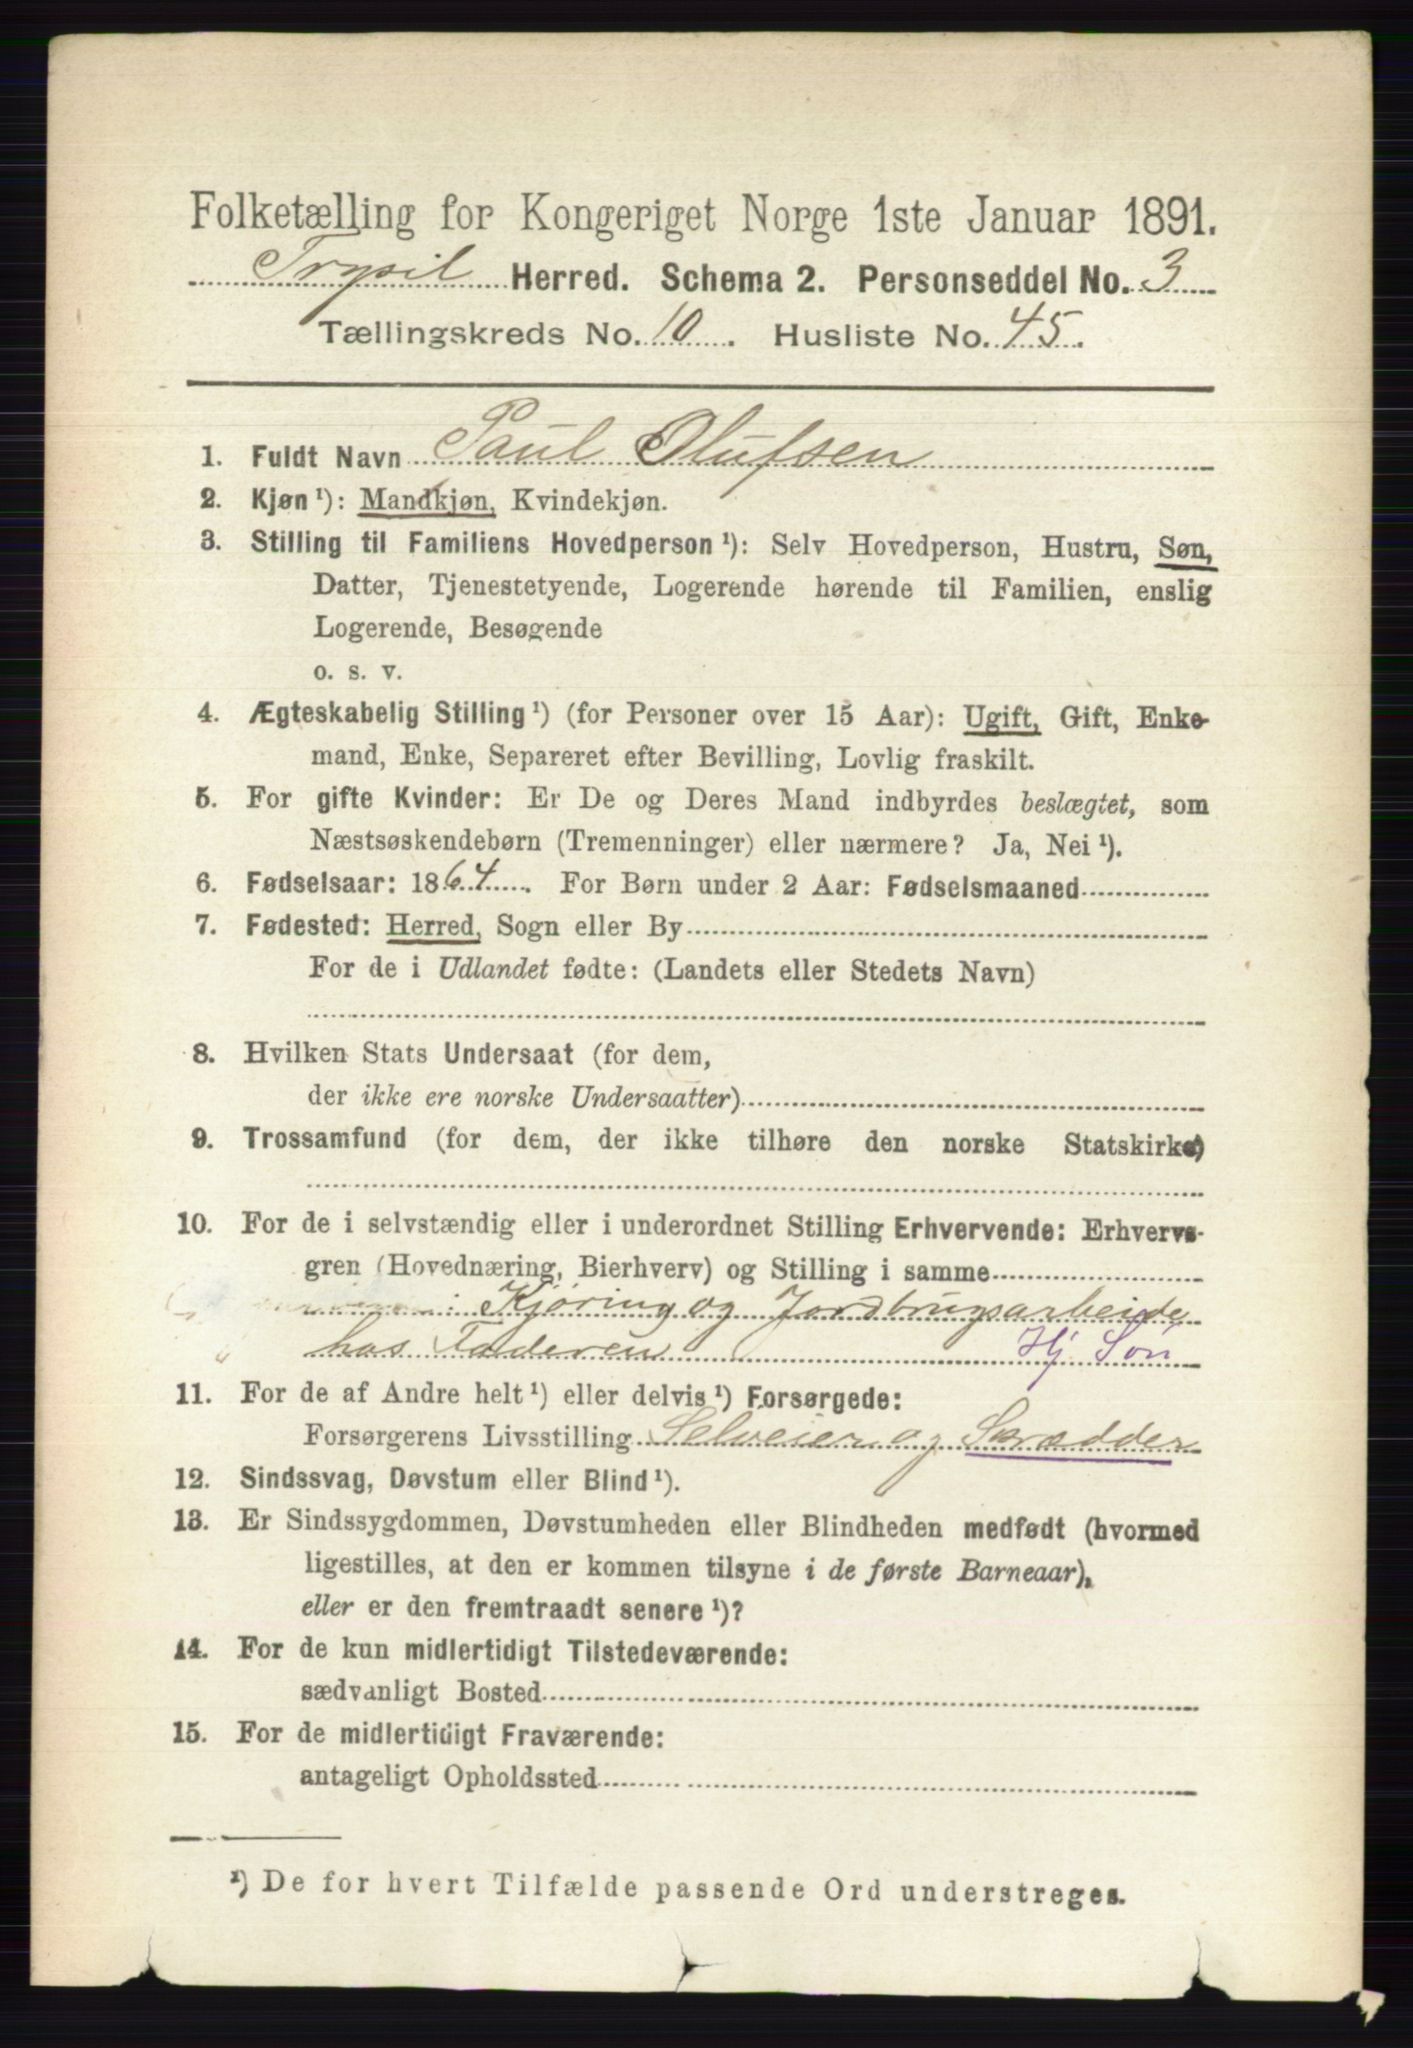 Folketælling for Kongeriget Norge 1ste Januar 1891.
Trysil Herred. Schema 2. Personseddel No. 3
Tællingskreds No. 10. Husliste No. 45.
1. Fuldt Navn Paul Olufsen
2. Kjøn ¹): Mandkjøn, Kvindekjøn.
3. Stilling til Familiens Hovedperson ¹): Selv Hovedperson, Hustru, Søn,
Datter, Tjenestetyende, Logerende hørende til Familien, enslig
Logerende, Besøgende
o. s. v.
4. Ægteskabelig Stilling ¹) (for Personer over 15 Aar): Ugift, Gift, Enke-
mand, Enke, Separeret efter Bevilling, Lovlig fraskilt.
5. For gifte Kvinder: Er De og Deres Mand indbyrdes beslægtet, som
Næstsøskendebørn (Tremenninger) eller nærmere? Ja, Nei ¹).
6. Fødselsaar: 1864. For Børn under 2 Aar: Fødselsmaaned
7. Fødested: Herred, Sogn eller By
For de i Udlandet fødte: (Landets eller Stedets Navn)
8. Hvilken Stats Undersaat (for dem,
der ikke ere norske Undersaatter)
9. Trossamfund (for dem, der ikke tilhøre den norske Statskirke)
10. For de i selvstændig eller i underordnet Stilling Erhvervende: Erhvervs-
gren (Hovednæring, Bierhverv) og Stilling i samme
Kjøring og Jordbrugsarbeide
hos Faderen Hj Søn
11. For de af Andre helt ¹) eller delvis ¹) Forsørgede:
Forsørgerens Livsstilling Selveier og Skrædder
12. Sindssvag, Døvstum eller Blind ¹).
13. Er Sindssygdommen, Døvstumheden eller Blindheden medfødt (hvormed
ligestilles, at den er kommen tilsyne i de første Barneaar),
eller er den fremtraadt senere ¹)?
14. For de kun midlertidigt Tilstedeværende:
sædvanligt Bosted
15. For de midlertidigt Fraværende:
antageligt Opholdssted
¹) De for hvert Tilfælde passende Ord understreges.